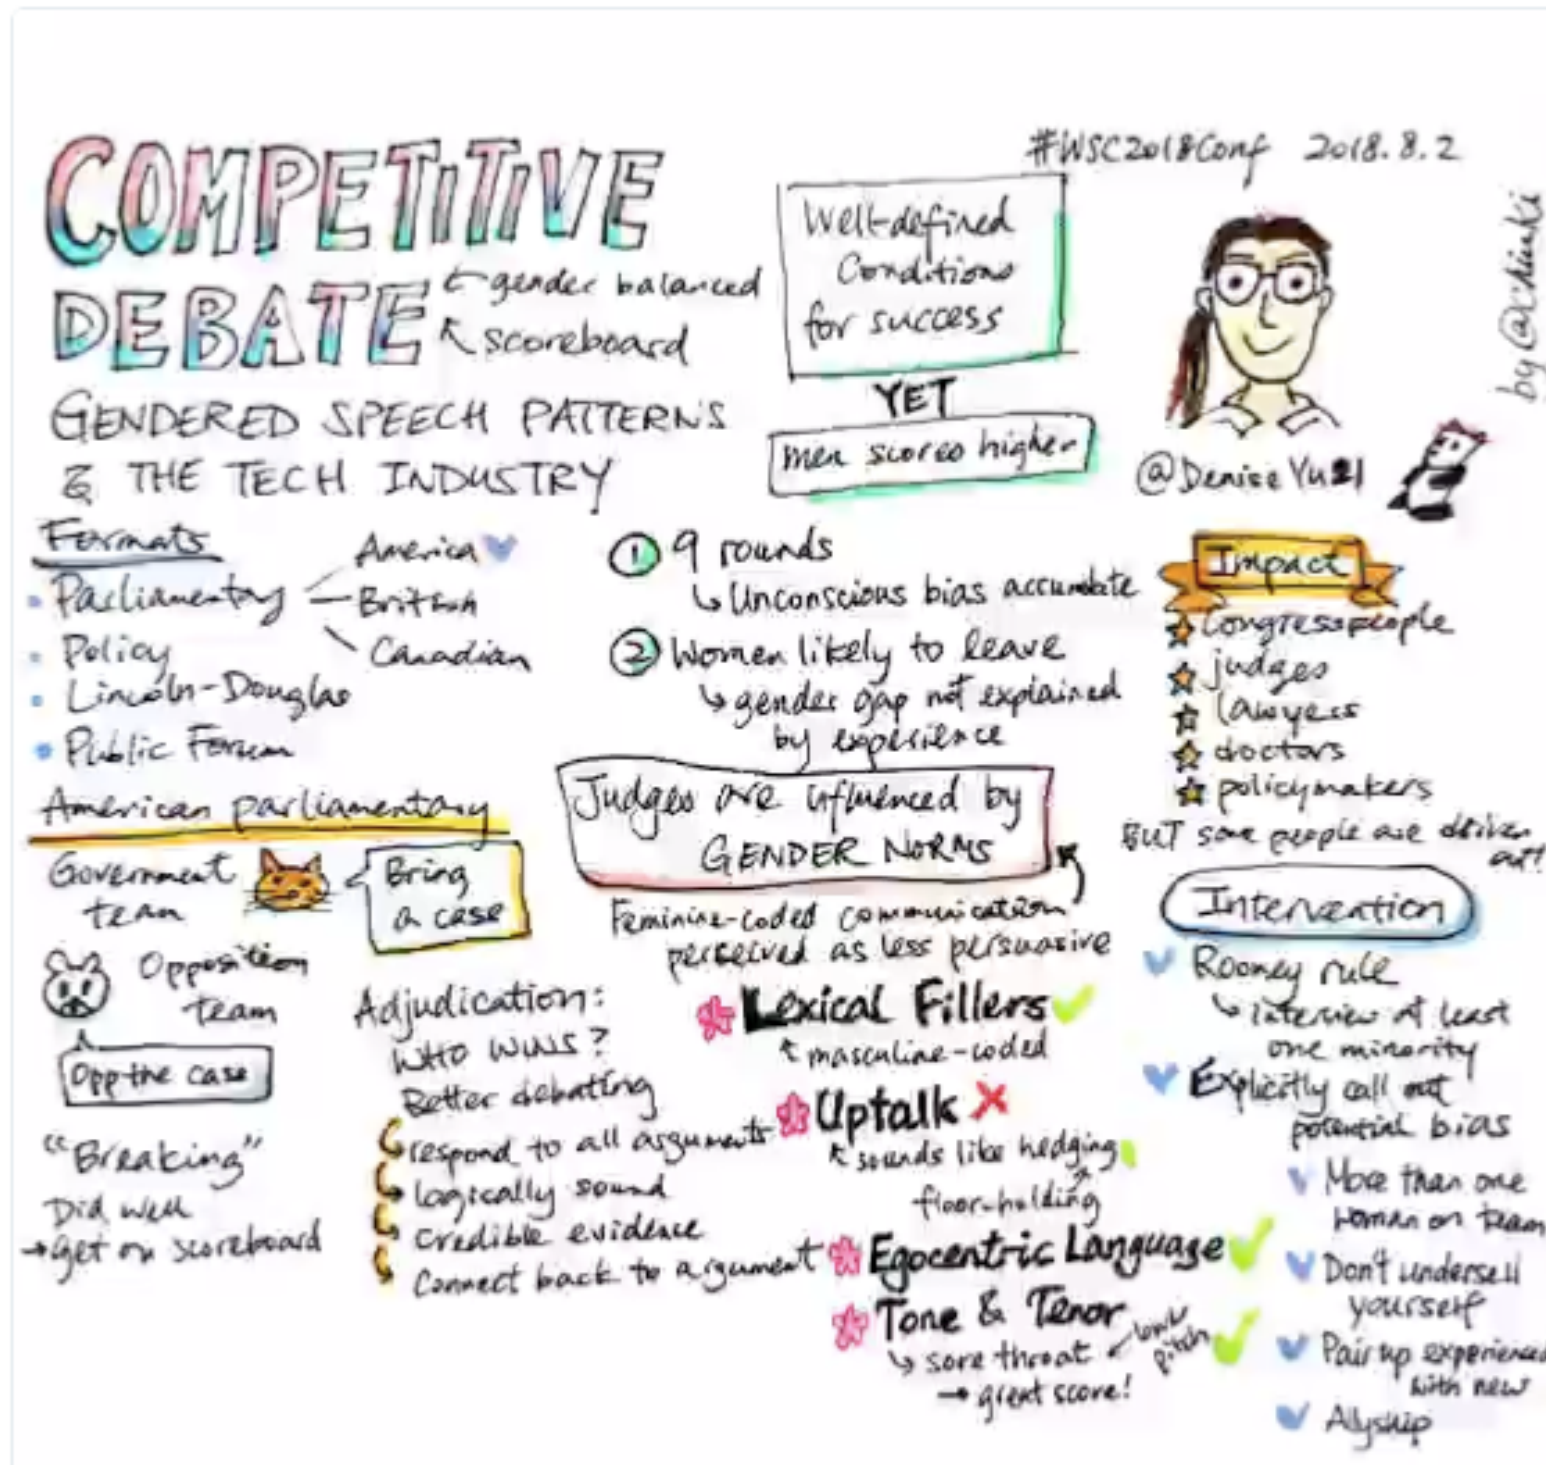 COMPETITIVE
DEBATE
← gender balanced
↖ scoreboard
GENDERED SPEECH PATTERNS
& THE TECH INDUSTRY
Well-defined
Conditions
for success
YET
men scored higher
#WSC2018Conf 2018.8.2
by @chiuki
@DeniseYu21
Formats
Parliamentary
America
British
Canadian
Policy
Lincoln-Douglas
Public Forum
American parliamentary
Government
team
Bring
a case
Opposition
team
Opp the case
"Breaking"
Did well
→ get on scoreboard
Adjudication:
WHO WINS?
Better debating
respond to all arguments
logically sound
credible evidence
Connect back to argument
① 9 rounds
↳ Unconscious bias accumulate
② Women likely to leave
↳ gender gap not explained
by experience
Judges are influenced by
GENDER NORMS
Feminine-coded communication
perceived as less persuasive
Lexical Fillers ✓
↖ masculine-coded
Uptalk ✗
↖ sounds like hedging
floor-holding
Egocentric Language ✓
Tone & Tenor ✓
↳ sore throat ← low
pitch
→ great score!
Impact
☆ Congresspeople
☆ judges
☆ lawyers
☆ doctors
☆ policymakers
BUT some people are driven
out!
Intervention
Rooney rule
↳ interview at least
one minority
Explicitly call out
potential bias
More than one
woman on team
Don't undersell
yourself
Pair up experienced
with new
Allyship